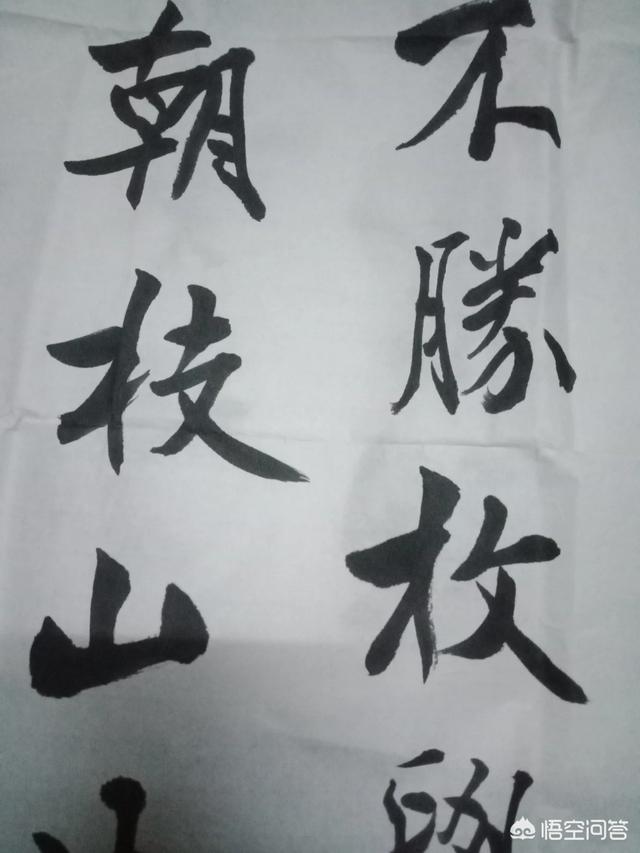 不勝枚
朝枝山
悟空问答